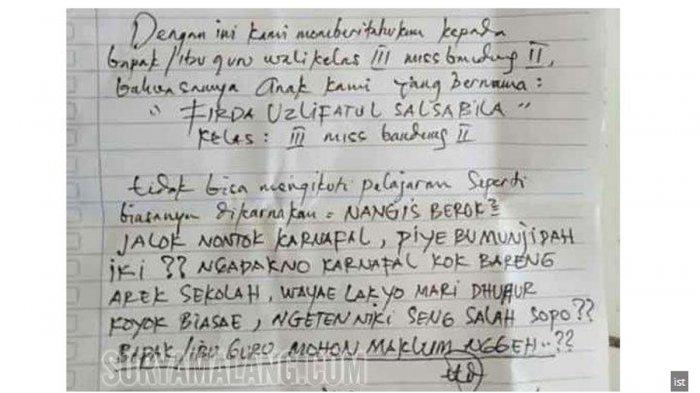 Dengan ini kami memberitahukan kepada
bapak/ibu guru wali kelas III miss bandung II,
bahwasanya anak kami yang bernama :
" FIRDA UZLIFATUL SALSABILA "
Kelas : III miss bandung II
tidak bisa mengikuti pelajaran seperti
biasanya dikarnakan = NANGIS BEROK²
JALOK NONTOK KARNAFAL, PIYE BU MUNJIDAH
IKI ?? NGADAKNO KARNAFAL KOK BARENG
AREK SEKOLAH, WAYAE LAK YO MARI DHUHUR
KOYOK BIASAE, NGETEN NIKI SENG SALAH SOPO??
BAPAK/IBU GURU MOHON MAKLUM NGGEH..??
SURYAMALANG.COM
ttd
ist